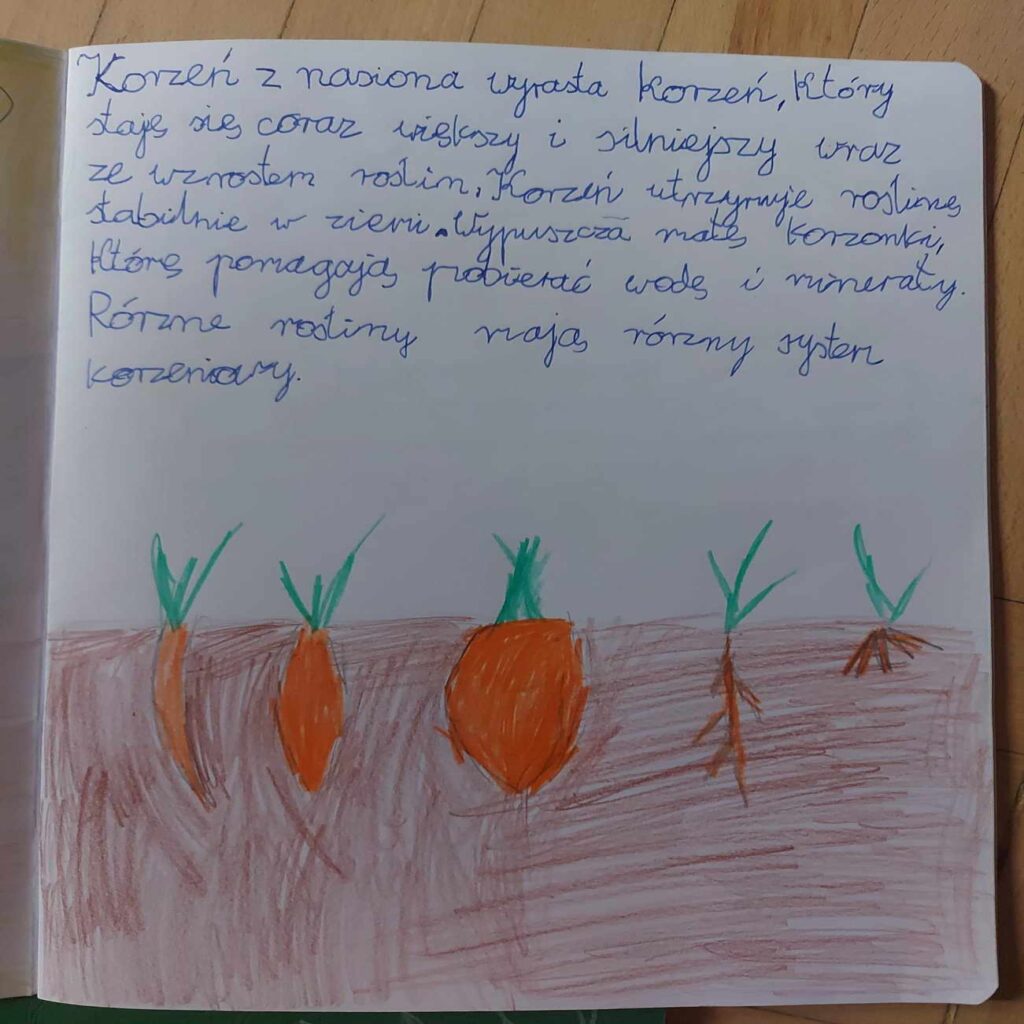 Korzeń z nasiona wyrasta korzeń, który
staję się coraz większy i silniejszy wraz
ze wzrostem roślin. Korzeń utrzymuje roślinę
stabilnie w ziemi. Wypuszcza małę korzonki,
którę pomagają pobierać wodę i minerały.
Rórzne rośliny mają rórzny system
korzeniowy.